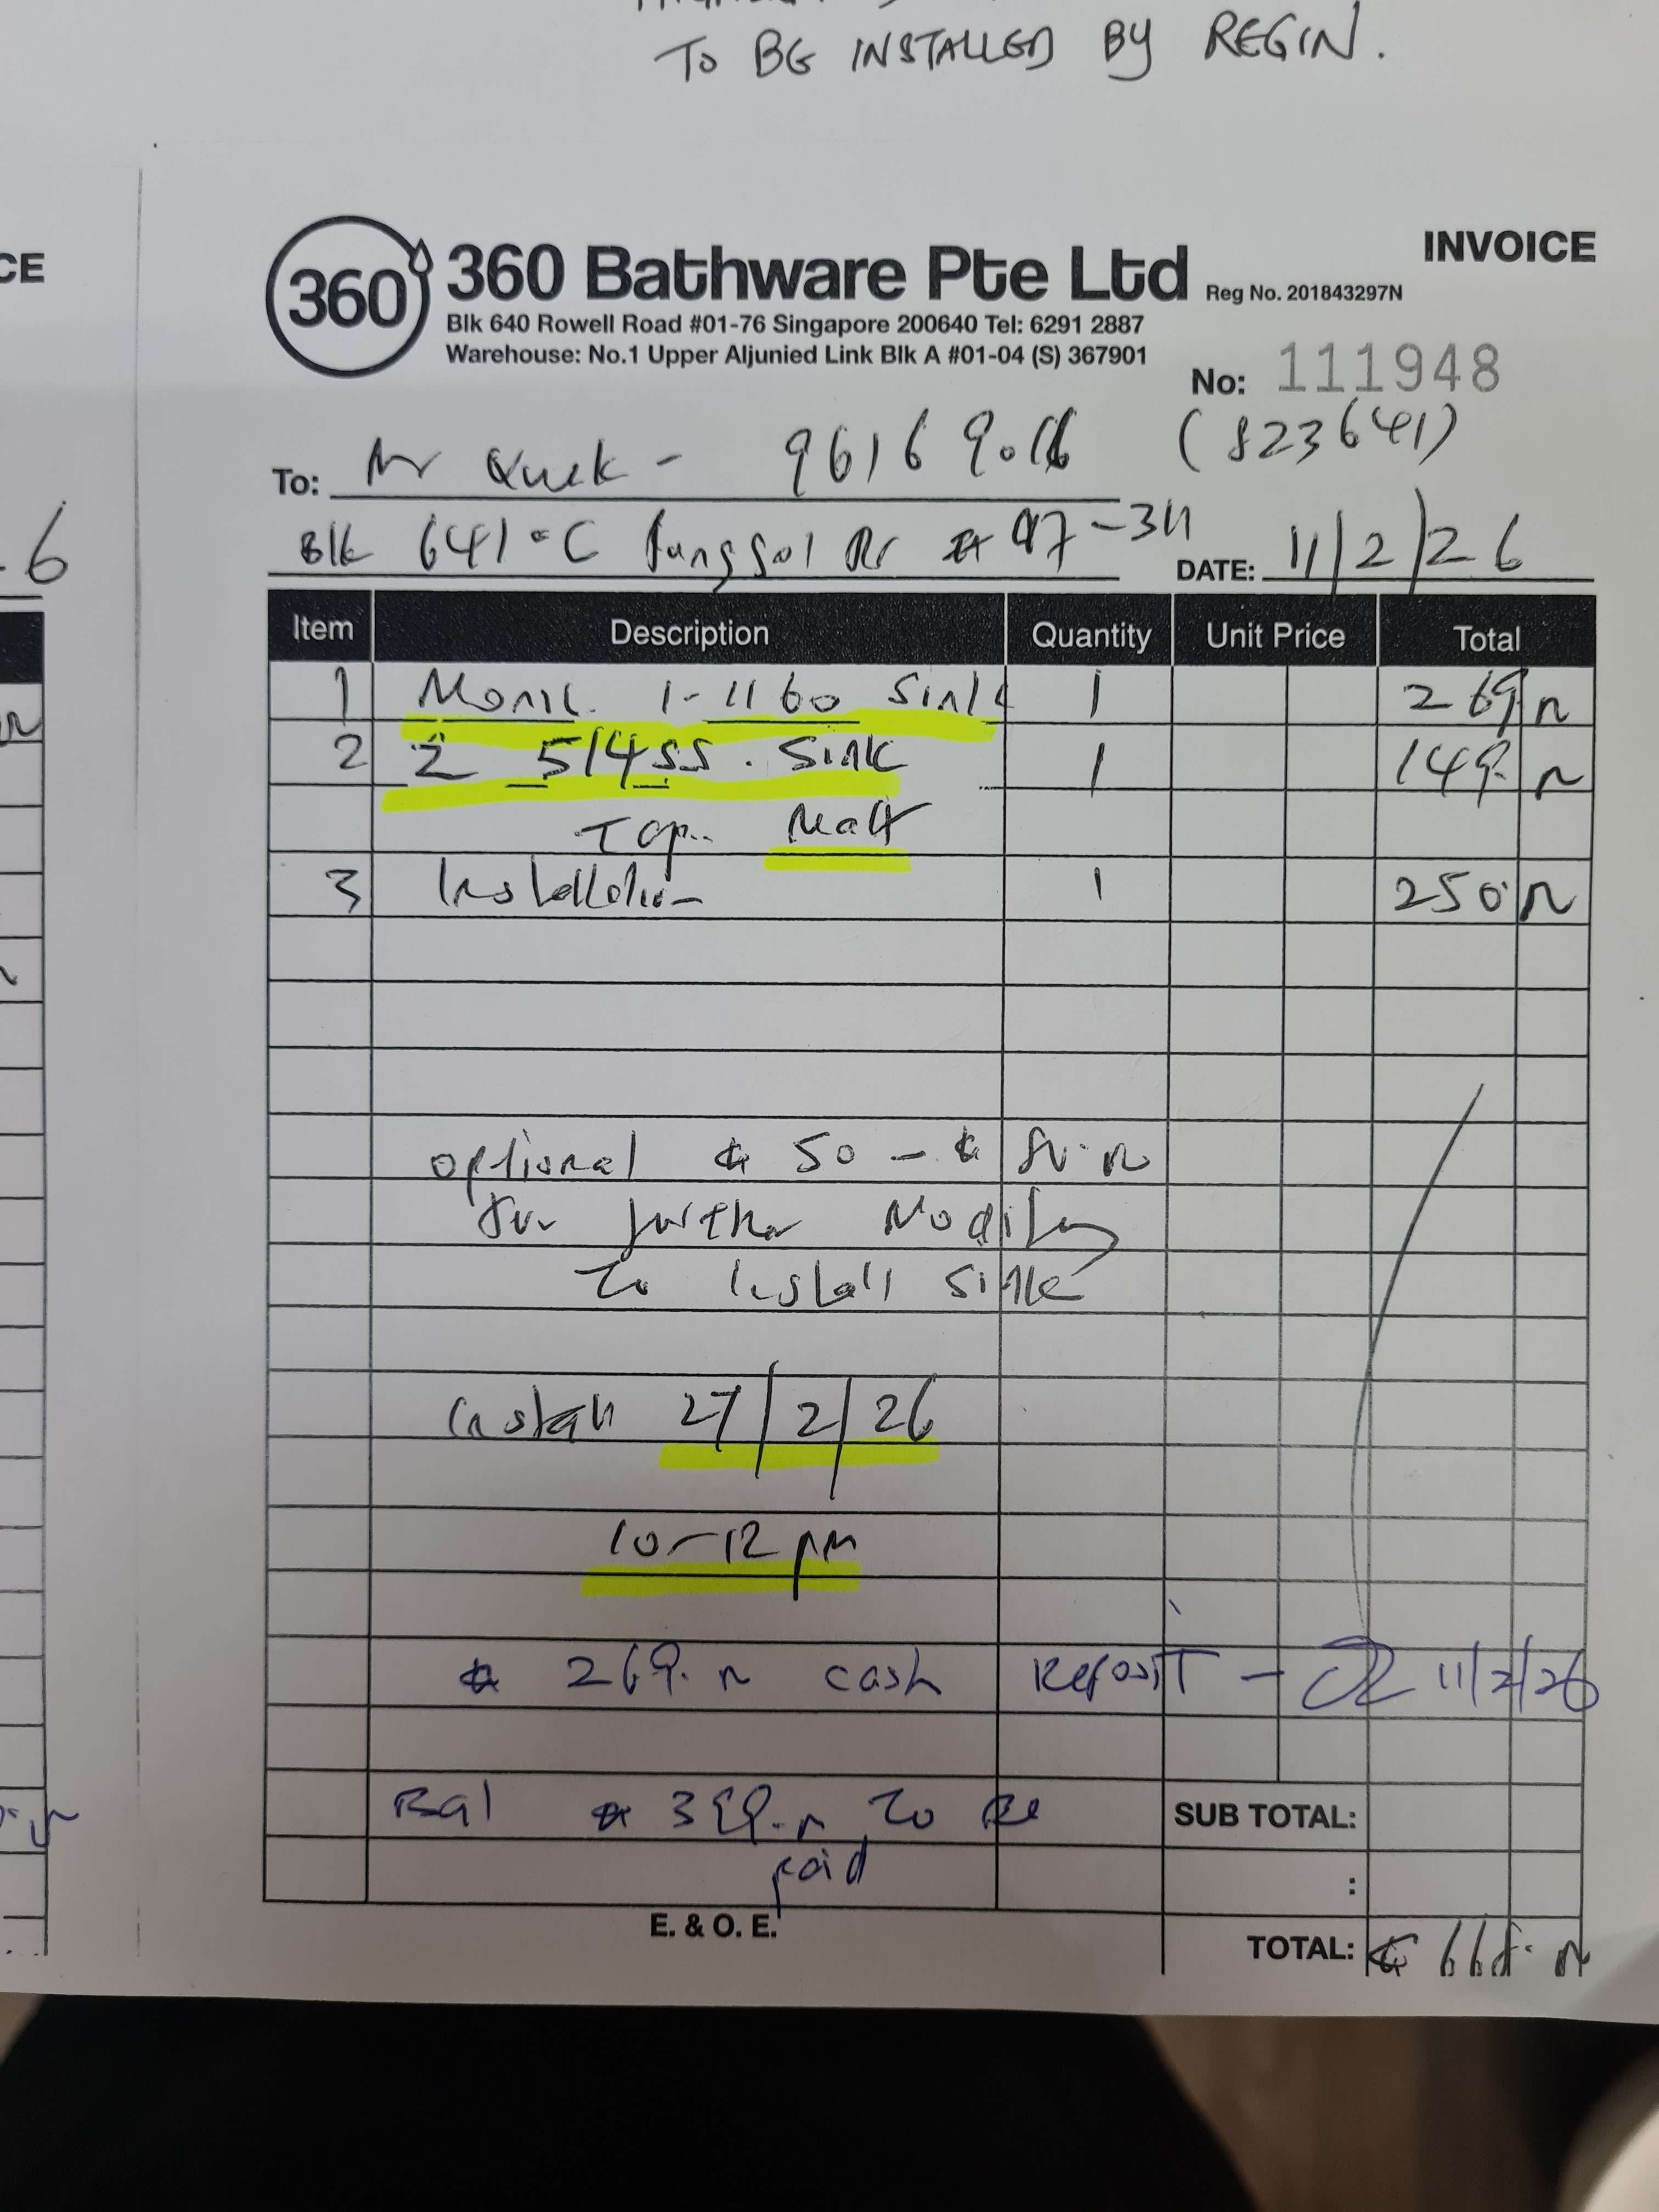 TO BE INSTALLED BY REGIN.
CE
INVOICE
360
360 Bathware Pte Ltd
Reg No. 201843297N
Blk 640 Rowell Road #01-76 Singapore 200640 Tel: 6291 2887
Warehouse: No.1 Upper Aljunied Link Blk A #01-04 (S) 367901
No: 111948
To: Mr Quek - (823641)
Blk 641 C Punggol Dr
DATE: 11/2/26
Item Description Quantity Unit Price Total
1 1-1160 Sink 1 269
2 514SS. Sink 1 149
Tap
3 Installation 1 250
optional $ 50 - $
for further Modify
to Install Sink
Install 27/2/26
10-12 pm
$ 269. cash Deposit - 11/2/26
Bal $ 399. to Be
paid
SUB TOTAL:
:
E. & O. E.
TOTAL: $ 668.